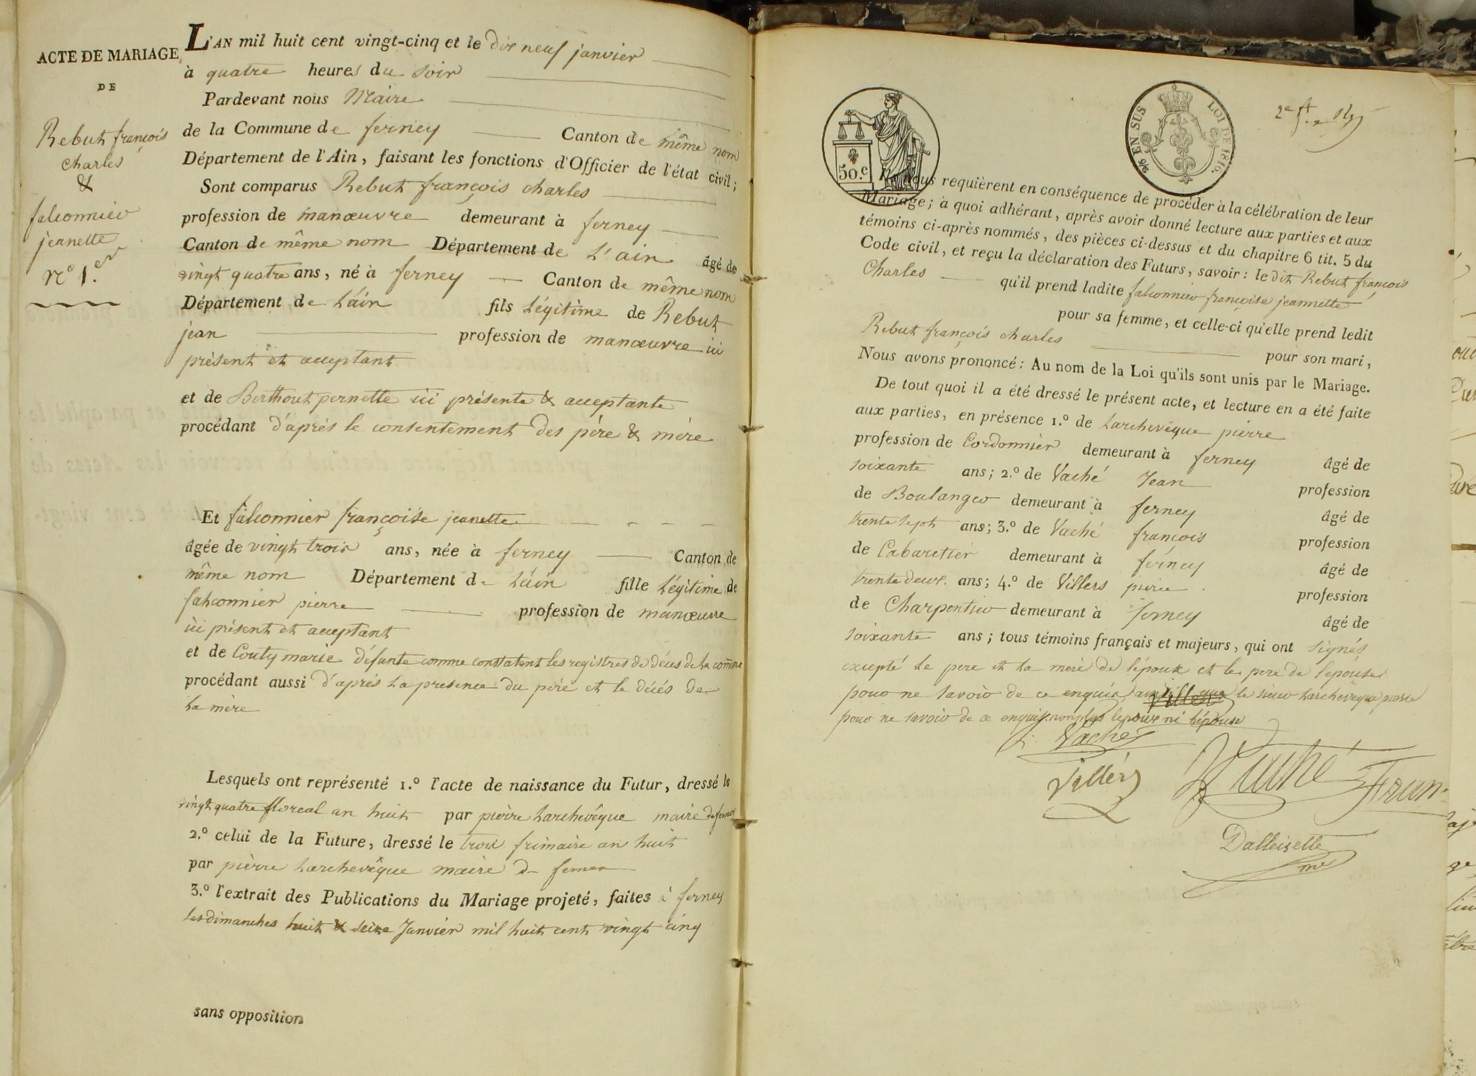 ACTE DE MARIAGE
DE
Rebut françois
charles
&
falconnier
jeanette
n.º 1.er
L'AN mil huit cent vingt-cinq et le dix neuf janvier
à quatre heures du soir
Pardevant nous Maire
de la Commune de ferney Canton de même nom
Département de l'Ain, faisant les fonctions d'Officier de l'état civil;
Sont comparus Rebut françois charles
profession de manœuvre demeurant à ferney
Canton de même nom Département de L'ain âgé de
vingt quatre ans, né à ferney Canton de même nom
Département de L'ain fils Légitime de Rebut
jean profession de manœuvre ici
présent et acceptant
et de Berthout pernette ici présente & acceptante
procédant d'après le consentement des père & mère
Et falconnier françoise jeanette
âgée de vingt trois ans, née à ferney Canton de
même nom Département de L'ain fille Légitime de
falconnier pierre profession de manœuvre
ici présent et acceptant
et de Couty marie défunte comme constatent les registres de décès de la comme
procédant aussi d'après la presence du père et le décès de
la mère
Lesquels ont représenté 1.º l'acte de naissance du Futur, dressé le
vingt quatre floreal an huit par pièrre Larchevêque maire de ferney
2.º celui de la Future, dressé le trois frimaire an huit
par pièrre Larchevêque maire de ferney
3.º l'extrait des Publications du Mariage projeté, faites à ferney
les dimanches huit & seize Janvier mil huit cent vingt cinq
sans opposition
50.c
EN SUS LOI DE 1816.
nous requièrent en conséquence de procéder à la célébration de leur
Mariage; à quoi adhérant, après avoir donné lecture aux parties et aux
témoins ci-après nommés, des pièces ci-dessus et du chapitre 6 tit. 5 du
Code civil, et reçu la déclaration des Futurs, savoir: le dit Rebut françois
Charles qu'il prend ladite falconnier françoise jeannette
pour sa femme, et celle-ci qu'elle prend ledit
Rebut françois charles pour son mari,
Nous avons prononcé: Au nom de la Loi qu'ils sont unis par le Mariage.
De tout quoi il a été dressé le présent acte, et lecture en a été faite
aux parties, en présence 1.º de Larchevêque pierre
profession de Cordonnier demeurant à ferney âgé de
soixante ans; 2.º de Vaché Jean profession
de Boulanger demeurant à ferney âgé de
trente sept ans; 3.º de Vaché françois profession
de Cabaretier demeurant à ferney âgé de
trente deux ans; 4.º de Villers pierre profession
de Charpentier demeurant à ferney âgé de
soixante ans; tous témoins français et majeurs, qui ont signés
excepté le pere et la mere de l'époux et le pere de l'épouse
pour ne savoir de ce enquis le sieur Larchevêque pierre
pour ne savoir de ce enquis non plus l'époux ni l'épouse
Vaché
Villers
Vaché Fran
Dalleizette
me